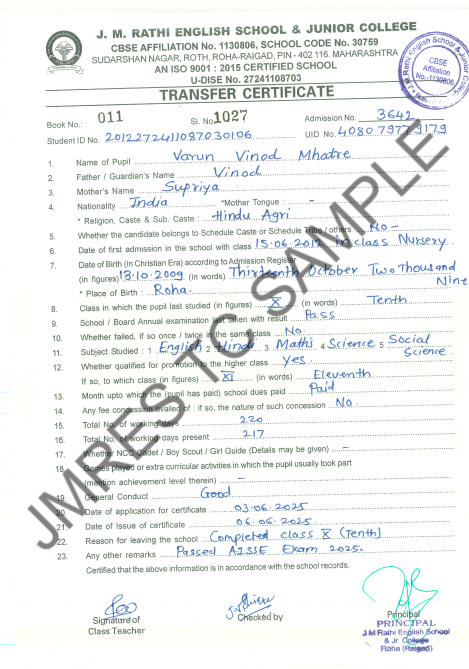 J. M. RATHI ENGLISH SCHOOL & JUNIOR COLLEGE
CBSE AFFILIATION No. 1130806, SCHOOL CODE No. 30759
SUDARSHAN NAGAR, ROTH, ROHA-RAIGAD, PIN - 402 116. MAHARASHTRA
AN ISO 9001 : 2015 CERTIFIED SCHOOL
U-DISE No. 27241108703
CBSE
Affiliation
No.-1130806
TRANSFER CERTIFICATE
Book No.: 011 Sl. No. 1027 Admission No. 3642
Student ID No. 2012272411087030106 UID No. 408079779179
1. Name of Pupil Varun Vinod Mhatre
2. Father / Guardian's Name Vinod
3. Mother's Name Supriya
4. Nationality India *Mother Tongue : -
* Religion, Caste & Sub. Caste : Hindu Agri
5. Whether the candidate belongs to Schedule Caste or Schedule Tribe / others No -
6. Date of first admission in the school with class 15.06.2012 in class Nursery
7. Date of Birth (in Christian Era) according to Admission Register
(in figures) 13.10.2009 (in words) Thirteenth October Two Thousand Nine
* Place of Birth : Roha
8. Class in which the pupil last studied (in figures) X (in words) Tenth
9. School / Board Annual examination last taken with result Pass
10. Whether failed, if so once / twice in the same class No
11. Subject Studied : 1 English 2 Hindi 3 Maths 4 Science 5 Social Science
12. Whether qualified for promotion to the higher class yes
If so, to which class (in figures) XI (in words) Eleventh
13. Month upto which the (pupil has paid) school dues paid Paid
14. Any fee concession availed of : if so, the nature of such concession No
15. Total No. of working days 220
16. Total No. of working days present 217
17. Whether NCC Cadet / Boy Scout / Girl Guide (Details may be given) -
18. Games played or extra curricular activities in which the pupil usually took part
(mention achievement level therein) -
19. General Conduct Good
20. Date of application for certificate 03.06.2025
21. Date of Issue of certificate 06.06.2025
22. Reason for leaving the school Completed class X (Tenth)
23. Any other remarks Passed AISSE Exam 2025.
Certified that the above information is in accordance with the school records.
Signature of
Class Teacher
Checked by
Principal
PRINCIPAL
J M Rathi English School
& Jr College
Roha (Raigad)
JMRES TC SAMPLE